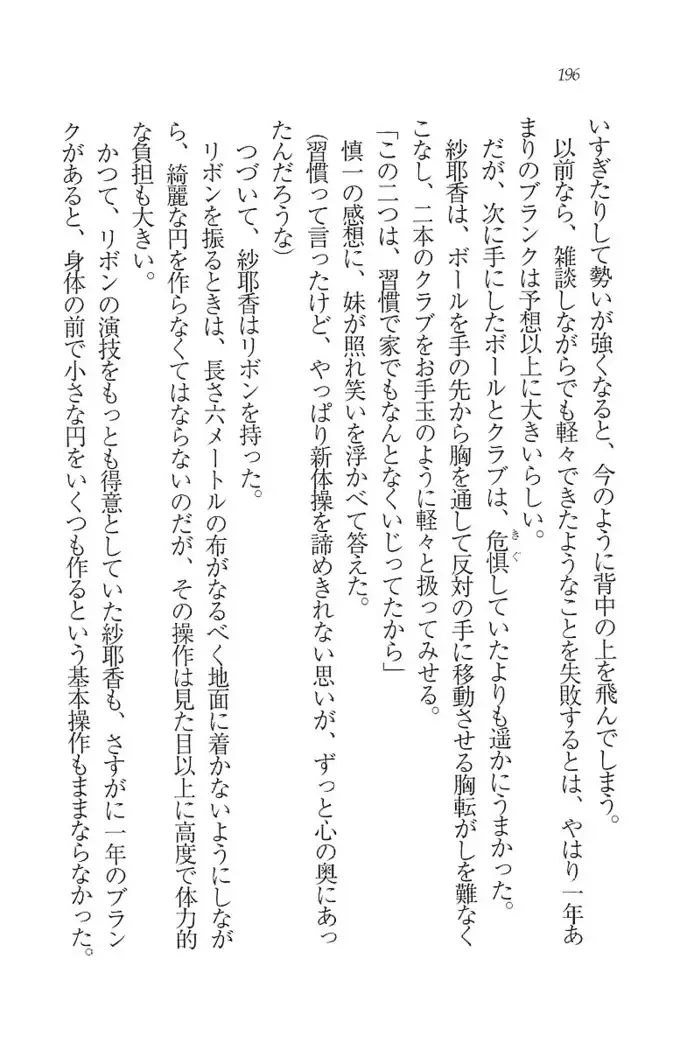 196
いすぎたりして勢いが強くなると、今のように背中の上を飛んでしまう。
以前なら、雑談しながらでも軽々できたようなことを失敗するとは、やはり一年あ
まりのブランクは予想以上に大きいらしい。
だが、次に手にしたボールとクラブは、危惧していたよりも遥かにうまかった。
きぐ
紗耶香は、ボールを手の先から胸を通して反対の手に移動させる胸転がしを難なく
こなし、二本のクラブをお手玉のように軽々と扱ってみせる。
「この二つは、習慣で家でもなんとなくいじってたから」
慎一の感想に、妹が照れ笑いを浮かべて答えた。
(習慣って言ったけど、やっぱり新体操を諦めきれない思いが、ずっと心の奥にあっ
たんだろうな)
つづいて、紗耶香はリボンを持った。
リボンを振るときは、長さ六メートルの布がなるべく地面に着かないようにしなが
ら、綺麗な円を作らなくてはならないのだが、その操作は見た目以上に高度で体力的
な負担も大きい。
かつて、リボンの演技をもっとも得意としていた紗耶香も、さすがに一年のブラン
クがあると、身体の前で小さな円をいくつも作るという基本操作もままならなかった。